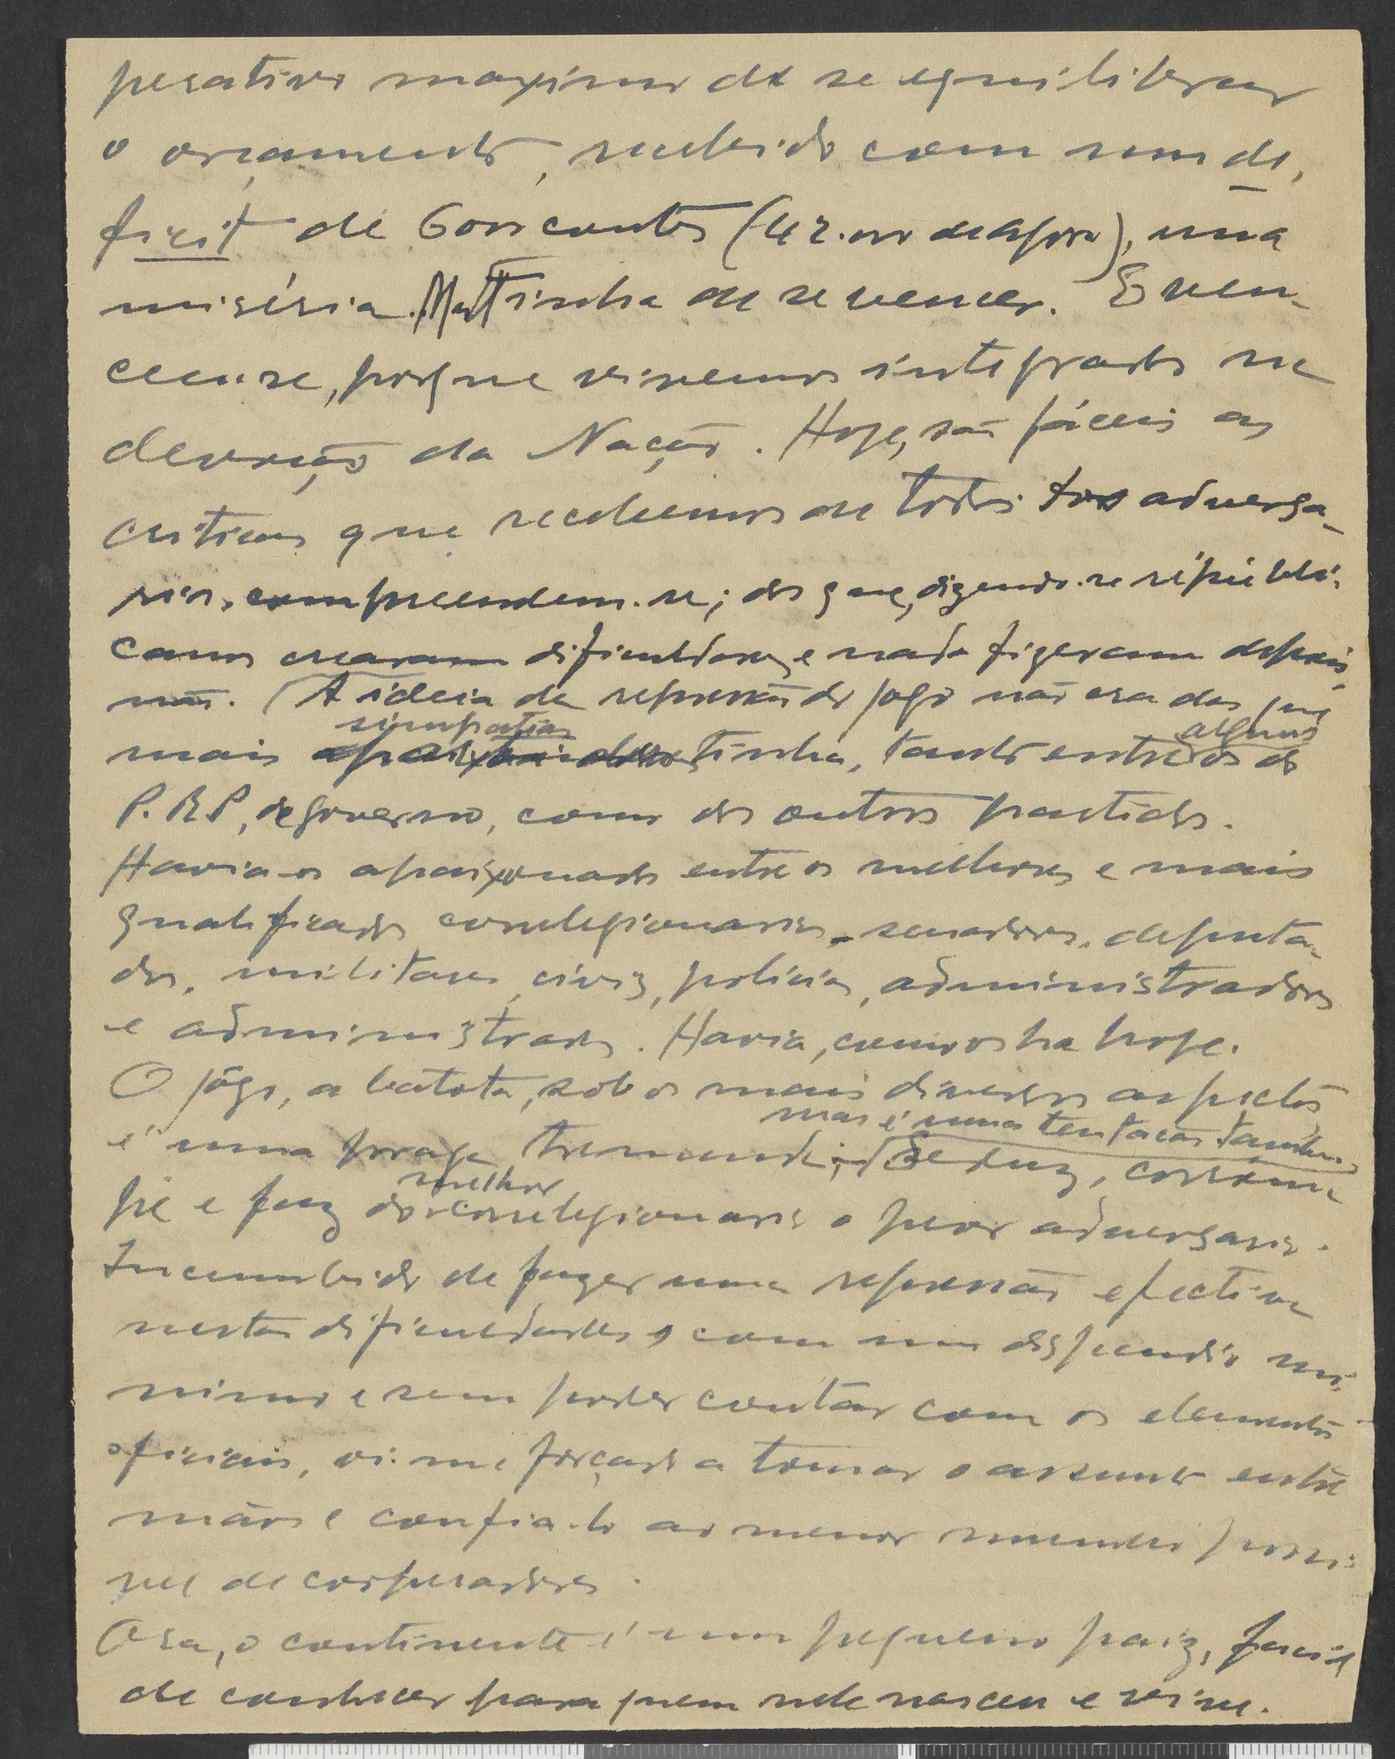 perativo maximo de se equilibrar
o orçamento, recebido com um de,
ficit de 6000 contos (42.000 de agora), uma
miséria. Mas tinha de se vencer. E ven-
ceu-se, porque vivemos integrados na
devoção da Nação. Hoje, são fáceis as
criticas que recebemos de todos. dos adversa-
rios, compreendem-se; dos que, dizendo-se républi-
canos crearam dificuldades, e nada fizeram depois,
não. A ideia da repressão do jogo não era das que
simpatias
alguns
mais tinha, tanto entre os do
P.R.P, de governo, como dos outros partidos.
Havia-os apaixonados entre os melhores e mais
qualificados correlegionarios - senadores, deputa-
dos, militares, civis, policias, administradores
e administrados. Havia, como os ha hoje.
O jôgo, a batota, sob os mais diversos aspectos
mas é uma tentação tambem
é uma praga tremenda; Seduz, corrom-
melhor
pe e faz do correlegionario o peor adversario.
Incumbido de fazer uma repressão efectiva
nestas dificuldades, com um dispendio mi-
nimo e sem poder contar com os elementos
oficiais, vi-me forçado a tomar o assunto entre
mãos e confia-lo ao menor numero possi-
vel de cooperadores.
Ora, o continente é um pequeno paiz, facil
de conhecer para quem nele nasceu e vive.